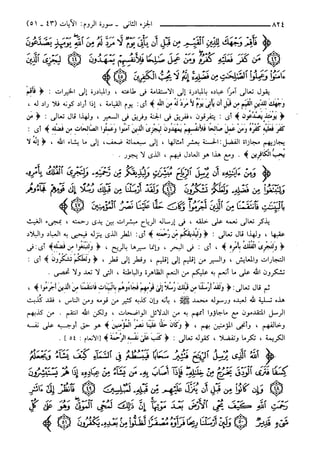 ٨٢٤ الجزء الثاني ـ سورة الروم: الآيات (٤٣ ـ ٥١)
﴿ فَأَقِمْ وَجْهَكَ لِلدِّينِ الْقَيِّمِ مِن قَبْلِ أَن يَأْتِيَ يَوْمٌ لَّا مَرَدَّ لَهُ مِنَ اللَّهِ يَوْمَئِذٍ يَصَّدَّعُونَ
﴿٤٣﴾ مَن كَفَرَ فَعَلَيْهِ كُفْرُهُ وَمَنْ عَمِلَ صَالِحًا فَلِأَنفُسِهِمْ يَمْهَدُونَ ﴿٤٤﴾ لِيَجْزِيَ الَّذِينَ
آمَنُوا وَعَمِلُوا الصَّالِحَاتِ مِن فَضْلِهِ إِنَّهُ لَا يُحِبُّ الْكَافِرِينَ ﴿٤٥﴾ ﴾
يقول تعالى آمرًا عباده بالمبادرة إلى الاستقامة في طاعته ، والمبادرة إلى الخيرات : ﴿ فَأَقِمْ
وَجْهَكَ لِلدِّينِ الْقَيِّمِ مِن قَبْلِ أَن يَأْتِيَ يَوْمٌ لَّا مَرَدَّ لَهُ مِنَ اللَّهِ ﴾ أي : يوم القيامة ، إذا أراد كونه فلا راد له ،
﴿ يَوْمَئِذٍ يَصَّدَّعُونَ ﴾ أي : يتفرقون ، ففريق في الجنة وفريق في السعير ، ولهذا قال تعالى : ﴿ مَن
كَفَرَ فَعَلَيْهِ كُفْرُهُ وَمَنْ عَمِلَ صَالِحًا فَلِأَنفُسِهِمْ يَمْهَدُونَ لِيَجْزِيَ الَّذِينَ آمَنُوا وَعَمِلُوا الصَّالِحَاتِ مِن فَضْلِهِ ﴾ أي :
يجازيهم مجازاة الفضل: الحسنة بعشر أمثالها ، إلى سبعمائة ضعف، إلى ما يشاء الله ، ﴿ إِنَّهُ لَا
يُحِبُّ الْكَافِرِينَ ﴾ . ومع هذا هو العادل فيهم ، الذي لا يجور .
﴿ وَمِنْ آيَاتِهِ أَن يُرْسِلَ الرِّيَاحَ مُبَشِّرَاتٍ وَلِيُذِيقَكُم مِّن رَّحْمَتِهِ وَلِتَجْرِيَ الْفُلْكُ بِأَمْرِهِ
وَلِتَبْتَغُوا مِن فَضْلِهِ وَلَعَلَّكُمْ تَشْكُرُونَ ﴿٤٦﴾ وَلَقَدْ أَرْسَلْنَا مِن قَبْلِكَ رُسُلًا إِلَى قَوْمِهِمْ فَجَاءُوهُم
بِالْبَيِّنَاتِ فَانتَقَمْنَا مِنَ الَّذِينَ أَجْرَمُوا وَكَانَ حَقًّا عَلَيْنَا نَصْرُ الْمُؤْمِنِينَ ﴿٤٧﴾ ﴾
يذكر تعالى نعمه على خلقه ، في إرساله الرياح مبشرات بين يدي رحمته ، بمجيء الغيث
عقبها ، ولهذا قال تعالى : ﴿ وَلِيُذِيقَكُم مِّن رَّحْمَتِهِ ﴾ أي: المطر الذي ينزله فيحيي به العباد والبلاد
﴿ وَلِتَجْرِيَ الْفُلْكُ بِأَمْرِهِ ﴾ ، أي : في البحر ، وإنما سيرها بالريح ، ﴿ وَلِتَبْتَغُوا مِن فَضْلِهِ ﴾ أي: في
التجارات والمعايش ، والسير من إقليم إلى إقليم ، وقطر إلى قطر ، ﴿ وَلَعَلَّكُمْ تَشْكُرُونَ ﴾ أي :
تشكرون الله على ما أنعم به عليكم من النعم الظاهرة والباطنة ، التي لا تعد ولا تحصى .
ثم قال تعالى : ﴿ وَلَقَدْ أَرْسَلْنَا مِن قَبْلِكَ رُسُلًا إِلَى قَوْمِهِمْ فَجَاءُوهُم بِالْبَيِّنَاتِ فَانتَقَمْنَا مِنَ الَّذِينَ أَجْرَمُوا ﴾ ،
هذه تسلية الله لعبده ورسوله محمد ، بأنه وإن كذبه كثير من قومه ومن الناس ، فقد كُذِّبت
الرسل المتقدمون مع ماجاؤوا أممهم به من الدلائل الواضحات ، ولكن الله انتقم . من كذبهم
وخالفهم ، وأنجى المؤمنين بهم ، ﴿ وَكَانَ حَقًّا عَلَيْنَا نَصْرُ الْمُؤْمِنِينَ ﴾ هو حق أوجبه على نفسه
الكريمة ، تكرمًا وتفضلًا ، كقوله تعالى : ﴿ كَتَبَ عَلَى نَفْسِهِ الرَّحْمَةَ ﴾ [الأنعام : ٥٤] .
﴿ اللَّهُ الَّذِي يُرْسِلُ الرِّيَاحَ فَتُثِيرُ سَحَابًا فَيَبْسُطُهُ فِي السَّمَاءِ كَيْفَ يَشَاءُ وَيَجْعَلُهُ
كِسَفًا فَتَرَى الْوَدْقَ يَخْرُجُ مِنْ خِلَالِهِ فَإِذَا أَصَابَ بِهِ مَن يَشَاءُ مِنْ عِبَادِهِ إِذَا هُمْ يَسْتَبْشِرُونَ
﴿٤٨﴾ وَإِن كَانُوا مِن قَبْلِ أَن يُنَزَّلَ عَلَيْهِم مِّن قَبْلِهِ لَمُبْلِسِينَ ﴿٤٩﴾ فَانظُرْ إِلَى آثَارِ
رَحْمَتِ اللَّهِ كَيْفَ يُحْيِي الْأَرْضَ بَعْدَ مَوْتِهَا إِنَّ ذَلِكَ لَمُحْيِي الْمَوْتَى وَهُوَ عَلَى كُلِّ
شَيْءٍ قَدِيرٌ ﴿٥٠﴾ وَلَئِنْ أَرْسَلْنَا رِيحًا فَرَأَوْهُ مُصْفَرًّا لَّظَلُّوا مِن بَعْدِهِ يَكْفُرُونَ ﴿٥١﴾ ﴾